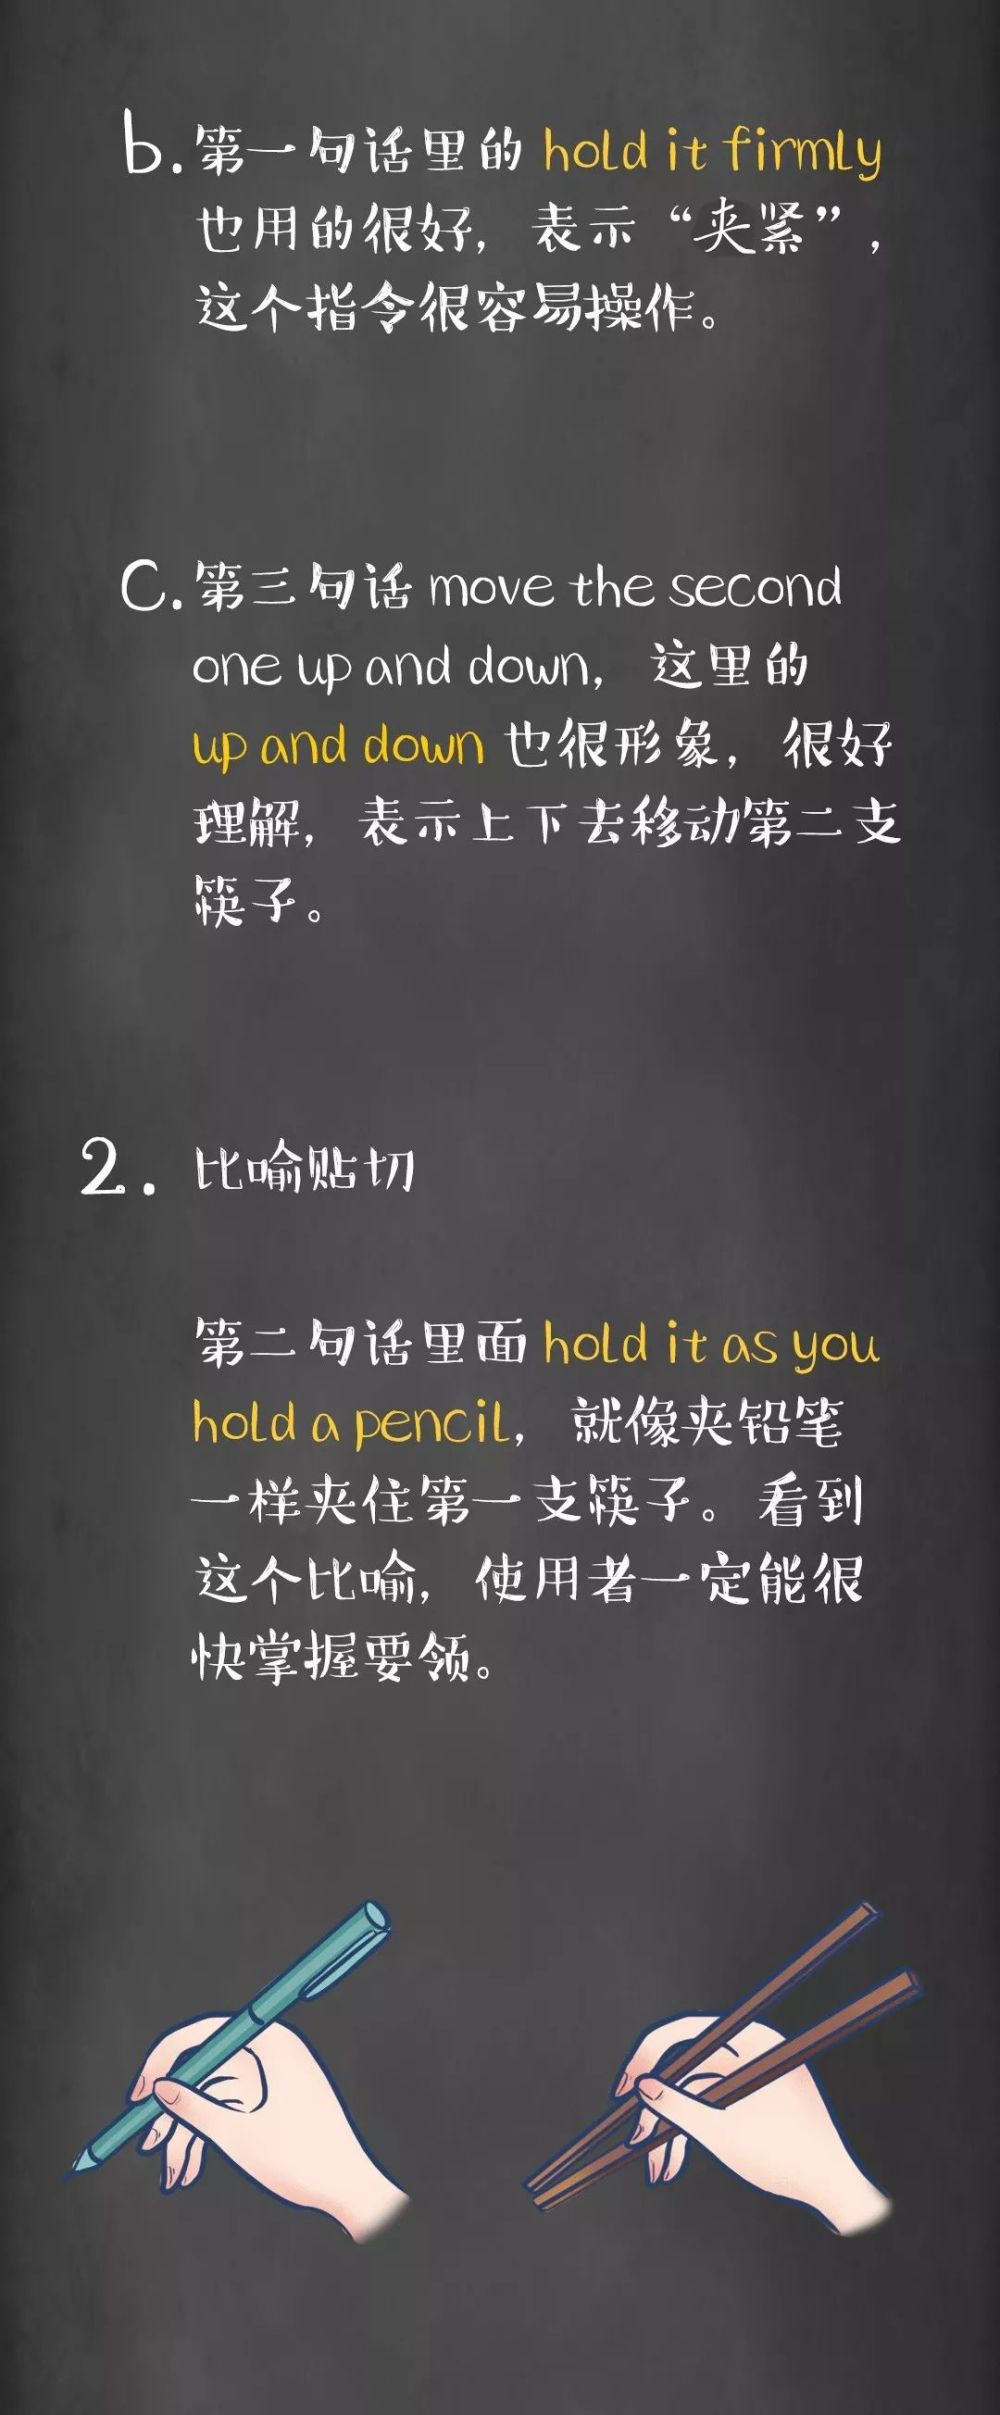 b. 第一句话里的 hold it firmly
也用的很好，表示“夹紧”，
这个指令很容易操作。
C. 第三句话 move the second
one up and down，这里的
up and down 也很形象，很好
理解，表示上下去移动第二支
筷子。
2. 比喻贴切
第二句话里面 hold it as you
hold a pencil，就像夹铅笔
一样夹住第一支筷子。看到
这个比喻，使用者一定能很
快掌握要领。